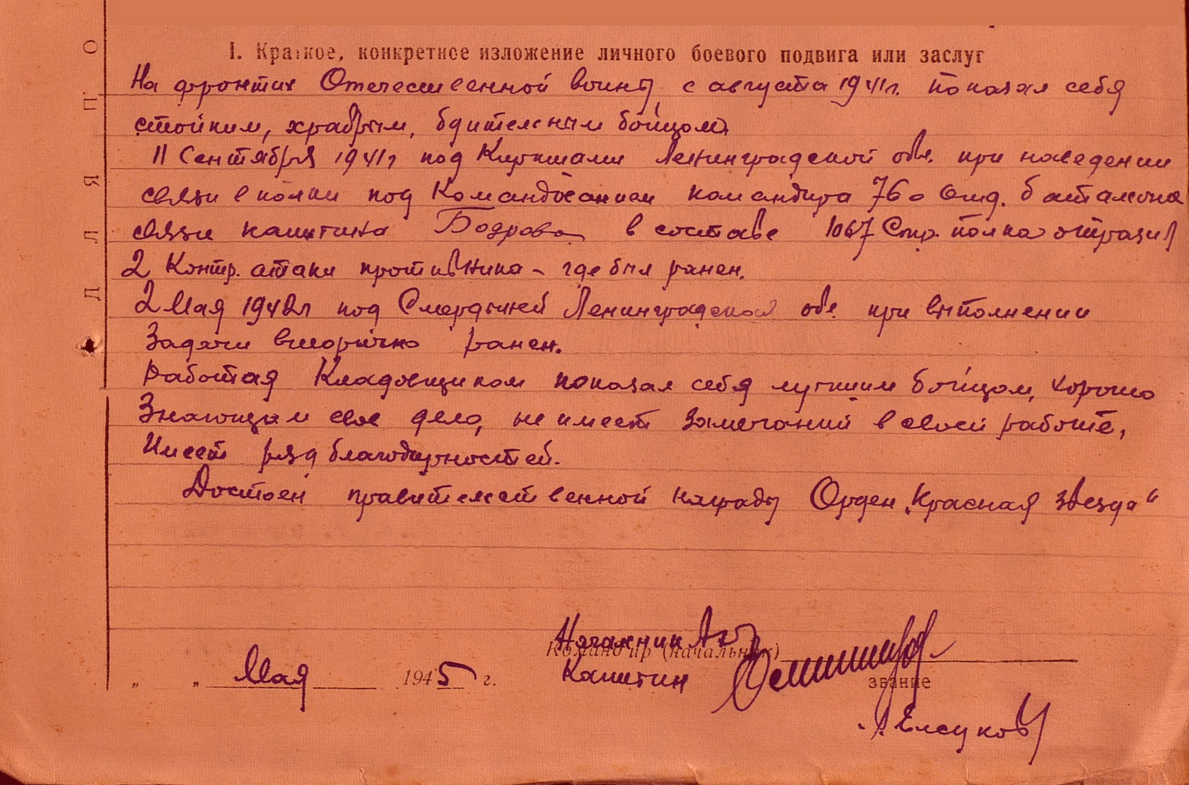 I. Краткое, конкретное изложение личного боевого подвига или заслуг
На фронтах Отечественной войны с августа 1941г. показал себя
стойким, храбрым, бдительным бойцом.
11 Сентября 1941г под Киришами Ленинградской обл. при наведении
связи в полки под Командованием командира 760 отд. батальона
связи капитана Бодрова в составе 1067 Стр. полка отразил
2 Контр. атаки противника - где был ранен.
2 Мая 1942г под Смердыней Ленинградской обл. при выполнении
Задачи вторично ранен.
Работая Кладовщиком показал себя лучшим бойцом, хорошо
Знающим свое дело, не имеет Замечаний в своей работе,
Имеет ряд благодарностей.
Достоен правительственной награды Орден „Красная Звезда“
Начальник
Командир (начальник)
„ „ Мая 1945 г. Капитан
звание
Елсуков
ДЛЯ ПО